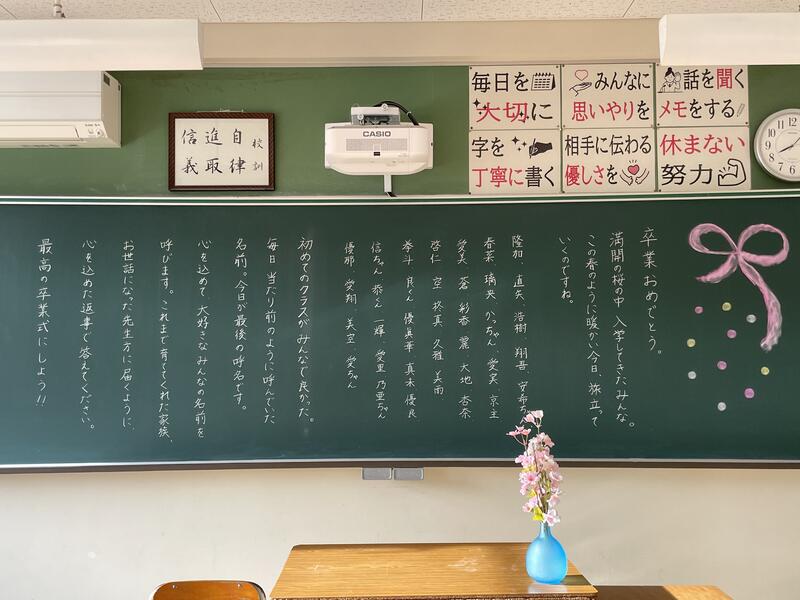 校訓
自律
進取
信義
CASIO
毎日を
大切に
みんなに
思いやりを
話を聞く
メモをする
字を
丁寧に書く
相手に伝わる
優しさを
休まない
努力
卒業おめでとう。
満開の桜の中 入学してきたみんな。
この春のように暖かい今日、旅立って
いくのですね。
隆加 直矢 浩樹 翔吾
春菜 璃央 かっちゃん 愛実 京主
愛美 蒼 彩香 麗 大地 杏奈
啓仁 空 柊真 久雅 美雨
拳斗 良くん 優真 華 真未 優良
信ちゃん 恭くん 一輝 愛里 乃亜ちゃん
優那 愛翔 美空 愛ちゃん
初めてのクラスがみんなで良かった。
毎日 当たり前のように呼んでいた
名前。今日が最後の呼名です。
心を込めて 大好きなみんなの名前を
呼びます。これまで育ててくれた家族、
お世話になった先生方に届くように、
心を込めた返事で答えてください。
最高の卒業式にしよう!!